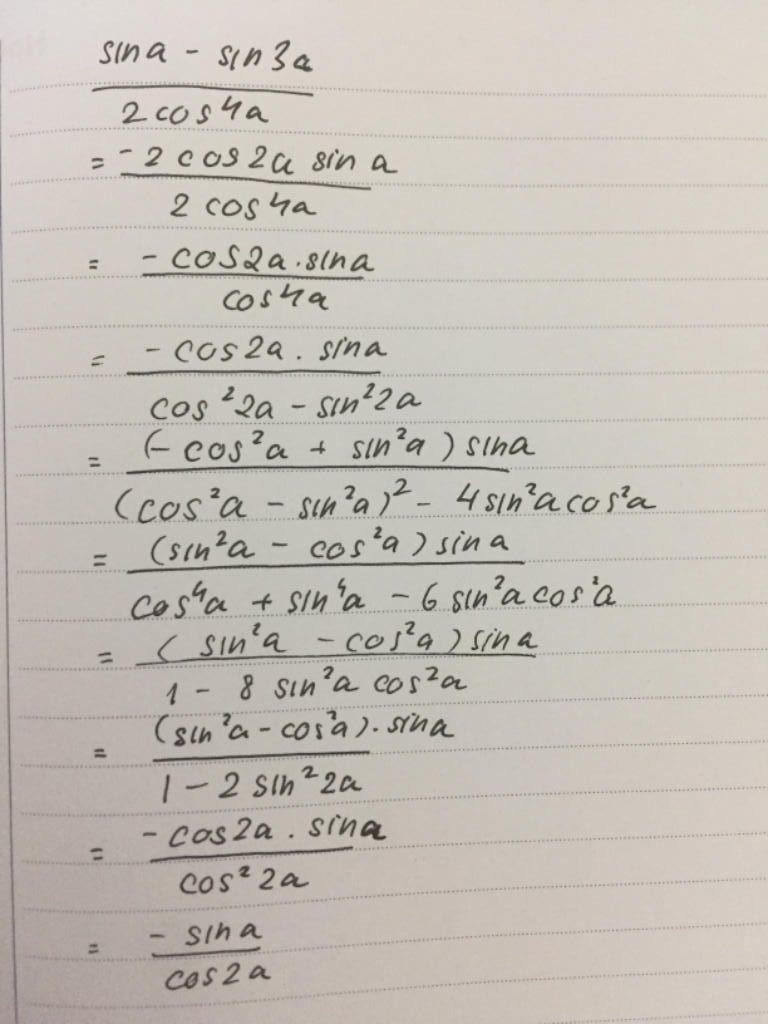 sina - sin3a
2cos4a
= -2cos2a sina
2cos4a
= -cos2a.sina
cos4a
= -cos2a.sina
cos²2a - sin²2a
= (-cos²a + sin²a) sina
(cos²a - sin²a)² - 4sin²acos²a
= (sin²a - cos²a) sina
cos⁴a + sin⁴a - 6sin²acos²a
= (sin²a - cos²a) sina
1 - 8 sin²a cos²a
= (sin²a - cos²a).sina
1 - 2 sin²2a
= -cos2a.sina
cos²2a
= -sina
cos2a